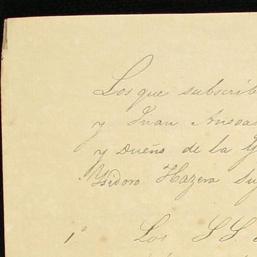 Los que subscrib
y Juan
y Dueño de la G
Ysidoro Hazera Su
1° Los SS